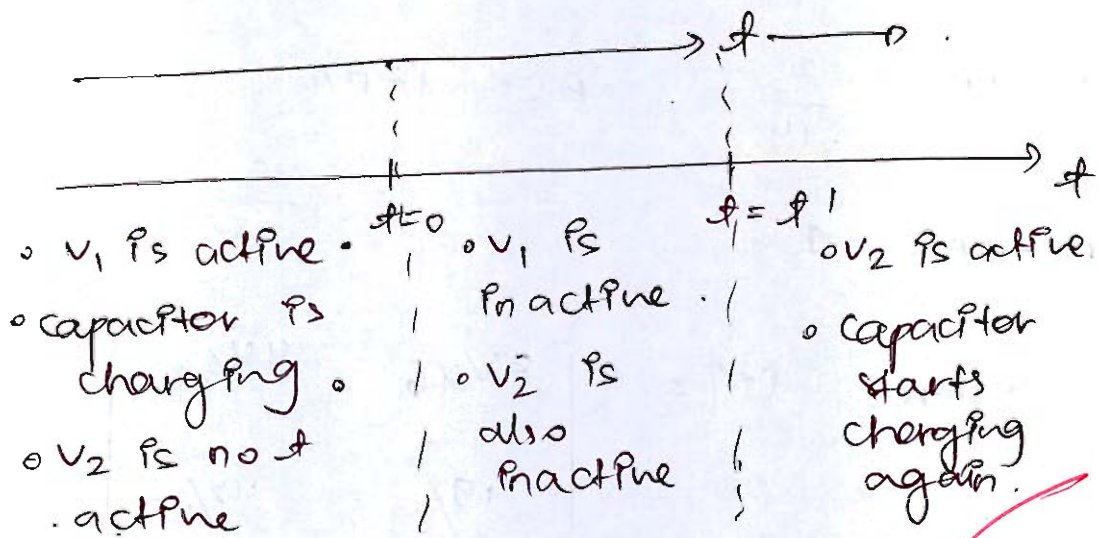 t
t
t=0
t = t'
• V₁ is active.
• capacitor is
charging.
• V₂ is not
active
• V₁ is
inactive.
• V₂ is
also
inactive
• V₂ is active
• capacitor
starts
charging
again.